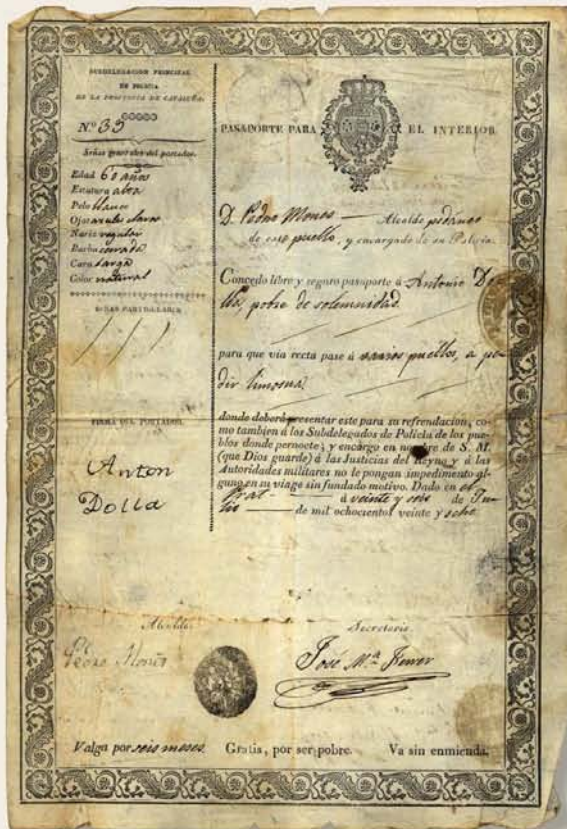 SUBDELEGACION PRINCIPAL
DE POLICÍA
DE LA PROVINCIA DE CATALUÑA.
N.º 35
Señas generales del portador.
Edad 60 años
Estatura alta
Pelo blanco
Ojos azules claros
Nariz regular
Barba cerrada
Cara larga
Color natural
SEÑAS PARTICULARES
FIRMA DEL PORTADOR.
Anton
Dolla
PASAPORTE PARA EL INTERIOR
D. Pedro Mones — Alcalde pedaneo
de este pueblo, y encargado de su Policía.
Concedo libre y seguro pasaporte á Antonio Do-
lla, pobre de solemnidad.
para que via recta pase á varios pueblos, a pe-
dir limosna.
donde deberá presentar este para su refrendacion, co-
mo tambien á los Subdelegados de Policía de los pue-
blos donde pernocte; y encargo en nombre de S. M.
(que Dios guarde) á las Justicias del Reyno y á las
Autoridades militares no le pongan impedimento al-
guno en su viage sin fundado motivo. Dado en el
Prat — á veinte y seis de Ju-
lio — de mil ochocientos veinte y ocho
Alcalde. Secretario.
Pedro Monés José M.ª Ferrer
Valga por seis meses. Gratis, por ser pobre. Va sin enmienda.